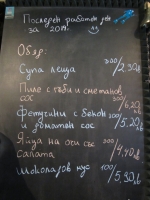 Последен работен ден
за 2011. лв
Обяд:
Супа леща 300/2,30лв
Пиле с гъби и сметанов
сос 300/6,20лв
Фетучини с бекон
и доматен сос 300/5,20лв
Яйца на очи със
салата 300/4,40лв
Шоколадов мус 100/5,30лв